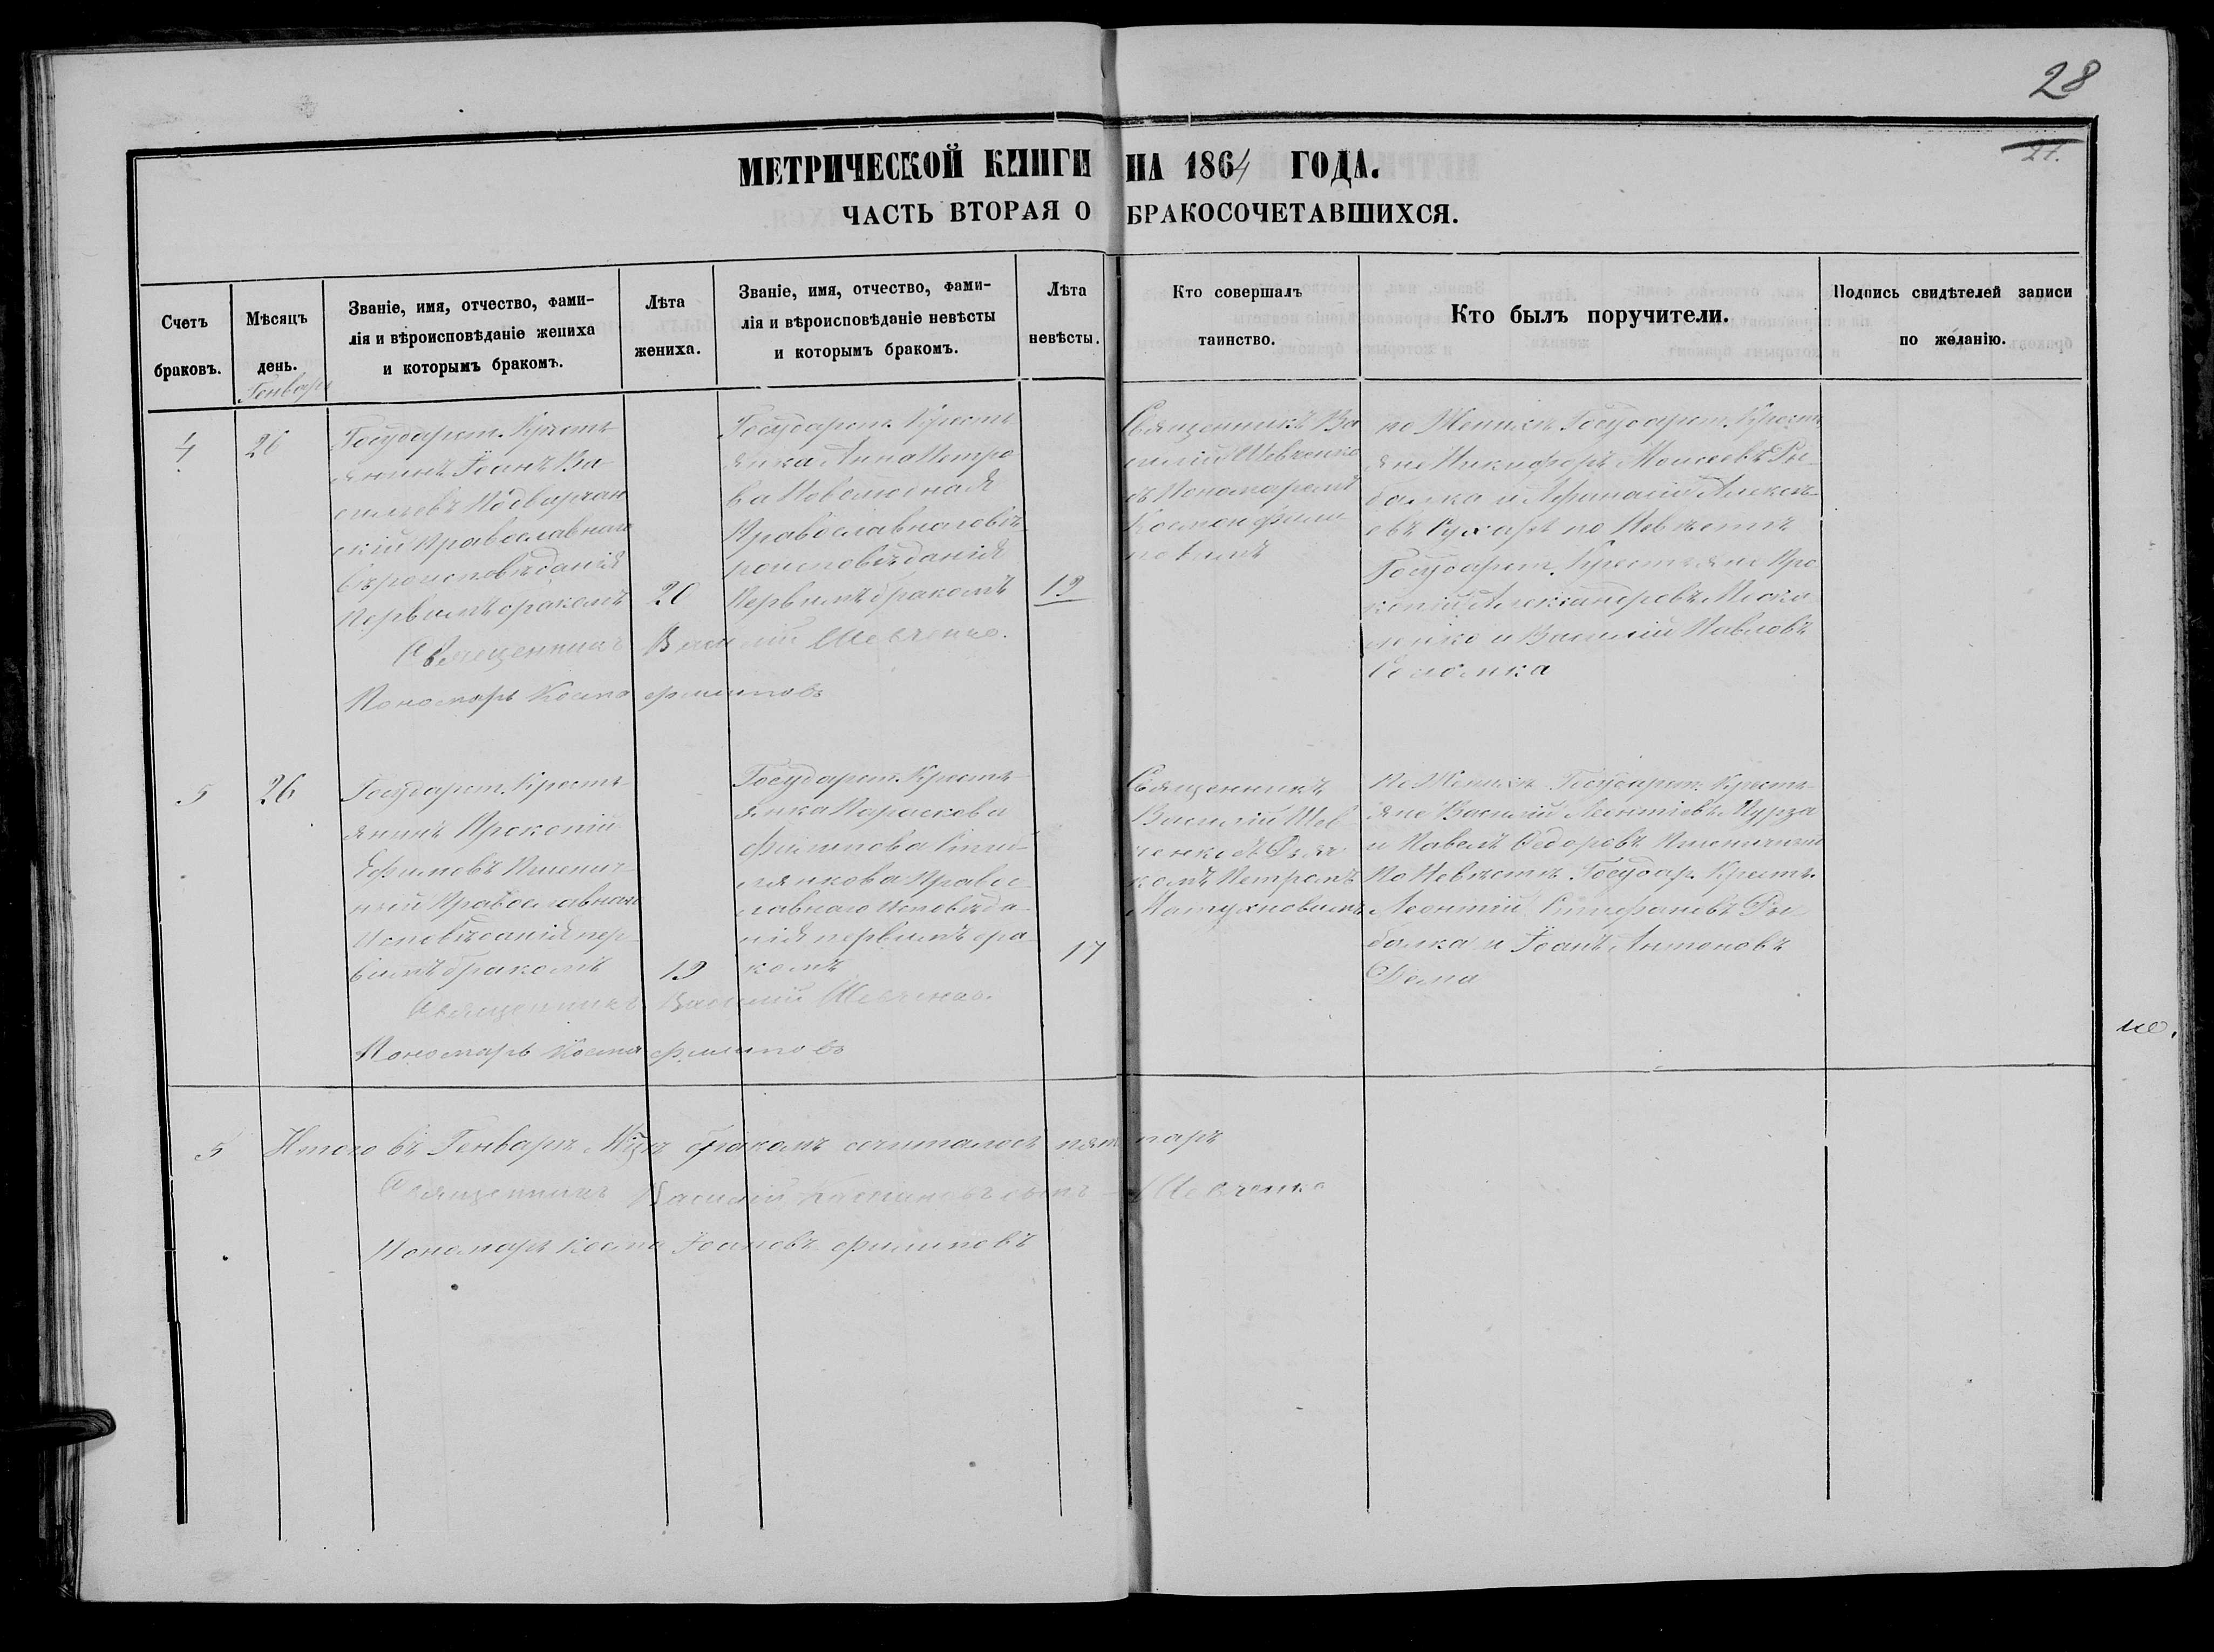 28
27.
МЕТРИЧЕСКОЙ КНИГИ НА 1864 ГОДА.
ЧАСТЬ ВТОРАЯ О БРАКОСОЧЕТАВШИХСЯ.
Счетъ браковъ.
Мѣсяцъ день.
Званіе, имя, отчество, фами-
лія и вѣроисповѣданіе жениха
и которымъ бракомъ.
Лѣта жениха.
Званіе, имя, отчество, фами-
лія и вѣроисповѣданіе невѣсты
и которымъ бракомъ.
Лѣта невѣсты.
Кто совершалъ
таинство.
Кто былъ поручители.
Подпись свидѣтелей записи
по желанію.
Генварь
4
26
Государст. Кресть-
янинъ Іоанъ Ва-
сильевъ Подварчан
скій Православнаго
Вѣроисповѣданія
Первымъ бракомъ
20
Государст. Кресть
янка Анна Петро
ва
Православнаго вѣ-
роисповѣданія
Первымъ бракомъ
19
Священникъ Ва
силій Шевченко
съ Пономаремъ
Космою Фили
повымъ
по Женихѣ Государст. Кресть
яне Никифоръ Моисеевъ Ры-
балка и Афанасій Алексѣ-
евъ Кухарь по Невѣстѣ
Государст. Крестьяне Про
копій Александровъ
и Василій Павловъ
Священникъ Василій Шевченко.
Пономарь Косма Филиповъ
5
26
Государст. Кресть-
янинъ Прокопій
Ефимовъ Пшенич-
ный Православнаго
Исповѣданія пер-
вымъ бракомъ
19
Государст. Кресть-
янка Параскева
Филипова
Правос-
лавнаго Исповѣда-
нія первымъ бра-
комъ
17
Священникъ
Василій Шев-
ченко съ Дьяч
комъ Петромъ
По Женихѣ Государст. Кресть-
яне Василій Леонтіевъ Мурза
и Павелъ Федоровъ Пшеничный
По Невѣстѣ Государ. Кресть.
Леонтій Стефановъ Ры-
балка и Іоанъ Антоновъ
Священникъ Василій Шевченко.
Пономарь Косма Филиповъ
5
Итого въ Генварѣ Мцѣ бракомъ сочиталось пять паръ
Священникъ Василій сынъ Шевченко
Пономарь Косма Іоановъ Филиповъ